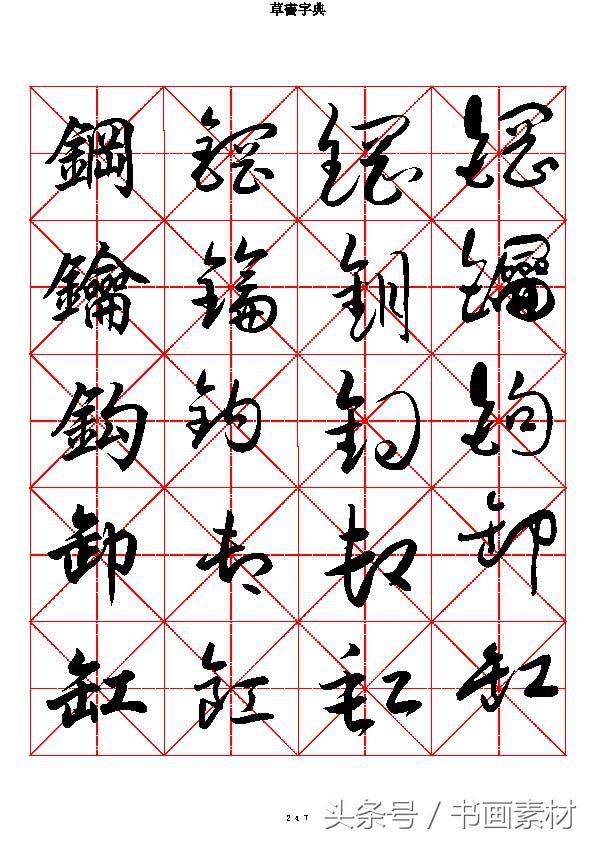 草書字典
鋼鋼鋼鋼
鑰鑰鑰鑰
鈎鈎鈎鈎
卸卸卸卸
缸缸缸缸
247
头条号 / 书画素材